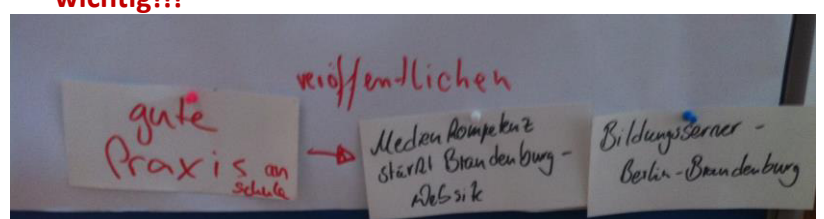 wichtig!!!
veröffentlichen
gute
Praxis an
Schule
Medienkompetenz
stärkt Brandenburg -
Website
Bildungsserver -
Berlin-Brandenburg